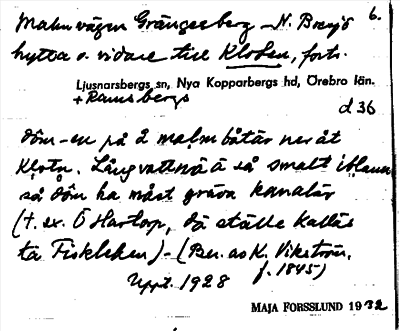 Malmvägen Grängesberg - N. Bredsjö 6.
hytta o. vidare till Kloten, forts.
Ljusnarsbergs sn, Nya Kopparbergs hd, Örebro län.
+ Ramsbergs
d 36
döm-en på å malmbåtär neråt
Klotn. Långvattnä ä så smalt iblann
så döm ha måst gräva kanalär
(t. ex. Ö Hartorp, dä ställe kalläs
ta Fiskleken) - (Ber. av K. Vikström,
f. 1845)
Uppt. 1928
MAJA FORSSLUND 1932